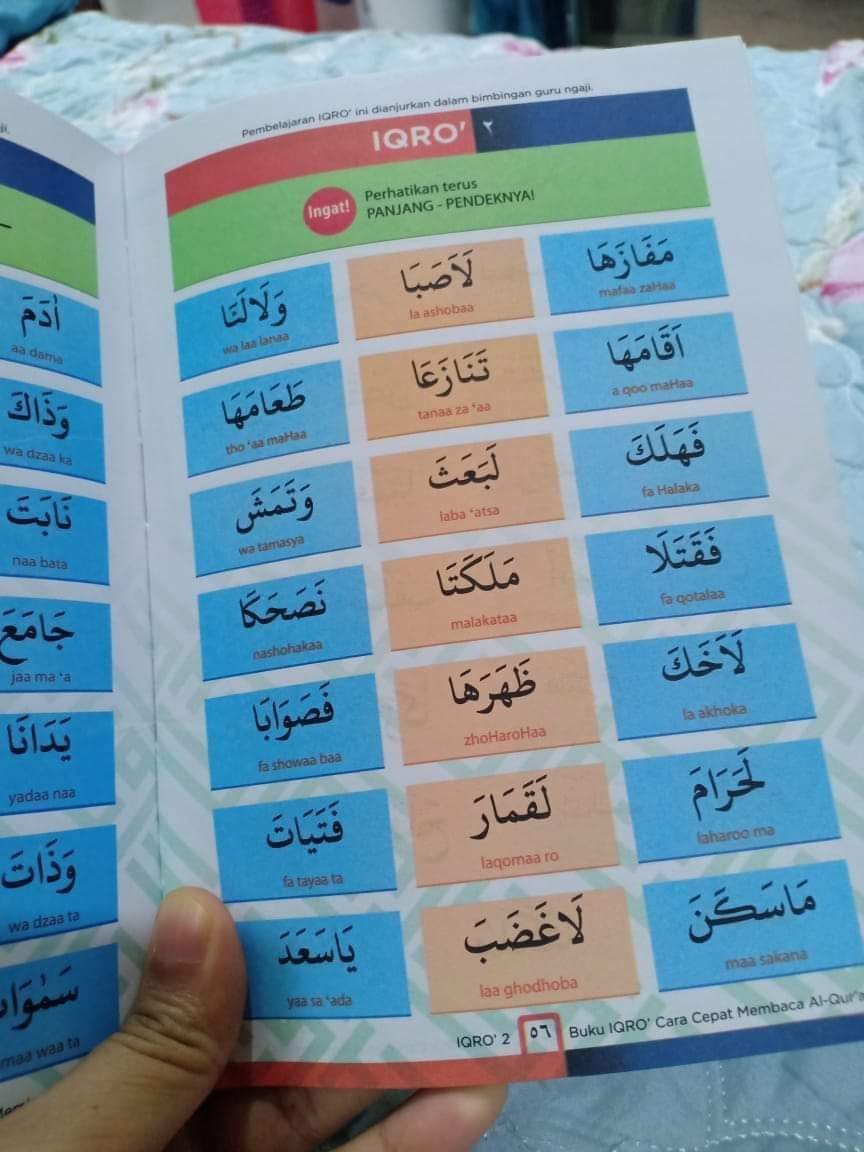 Pembelajaran IQRO' ini dianjurkan dalam bimbingan guru ngaji.
IQRO' ٢
Ingat!
Perhatikan terus
PANJANG - PENDEKNYA!
مَفَازَهَا لَاَصَبَا وَلَالَنَا
mafaa zaHaa la ashobaa wa laa lanaa
اَقَامَهَا تَنَازَعَا طَعَامَهَا
a qoo maHaa tanaa za 'aa tho 'aa maHaa
فَهَلَكَ لَبَعَثَ وَتَمَشَ
fa Halaka laba 'atsa wa tamasya
فَقَتَلَا مَلَكَتَا نَصَحَكَا
fa qotalaa malakataa nashohakaa
لَاَخَكَ ظَهَرَهَا فَصَوَابَا
la akhoka zhoHaroHaa fa showaa baa
لَحَرَامَ لَقَمَارَ فَتَيَاتَ
laharoo ma laqomaa ro fa tayaa ta
مَاسَكَنَ لَاغَضَبَ يَاسَعَدَ
maa sakana laa ghodhoba yaa sa 'ada
IQRO' 2 ٥٦ Buku IQRO' Cara Cepat Membaca Al-Qur'a
اٰدَمَ
aa dama
وَذَاكَ
wa dzaa ka
نَابَتَ
naa bata
جَامَعَ
jaa ma 'a
يَدَانَا
yadaa naa
وَذَاتَ
wa dzaa ta
maa waa ta